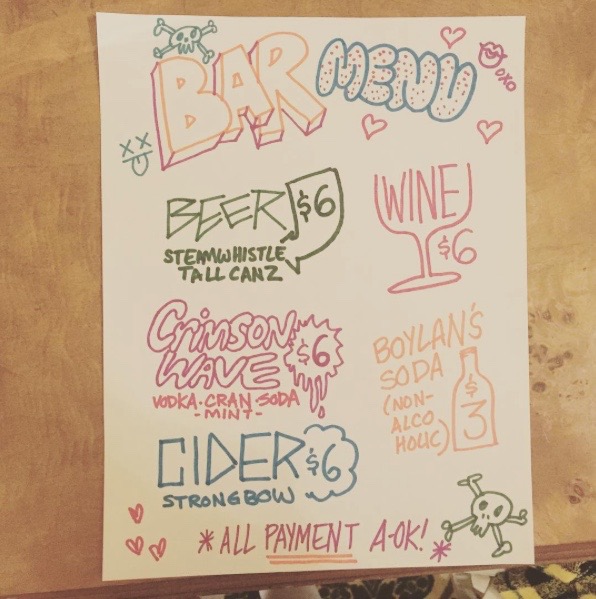 BAR MENU
OXO
BEER $6
STEAMWHISTLE
TALL CANZ
WINE
$6
CRIMSON
WAVE $6
VODKA·CRAN·SODA
-MINT-
BOYLAN'S
SODA
(NON-
ALCO
HOLIC)
$3
CIDER $6
STRONGBOW
*ALL PAYMENT A-OK!*